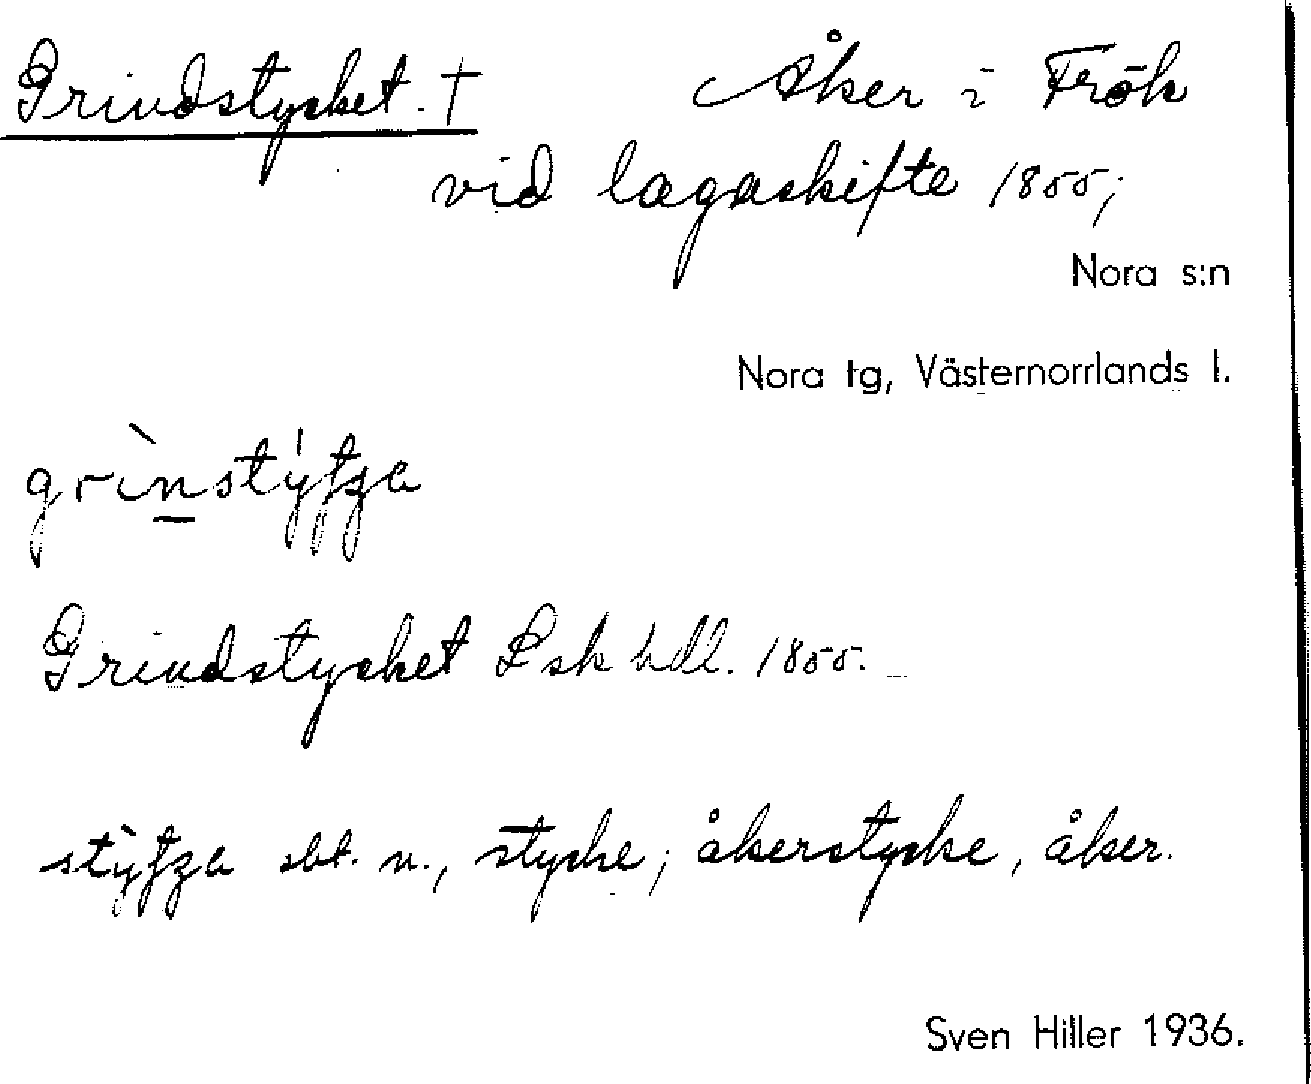 Grindstycket. † Åker i Frök
vid lagaskifte 1855;
Nora s:n
Nora tg, Västernorrlands l.
Grindstycket Lsk hdl. 1855.
sbt. n., stycke; åkerstycke, åker.
Sven Hiller 1936.